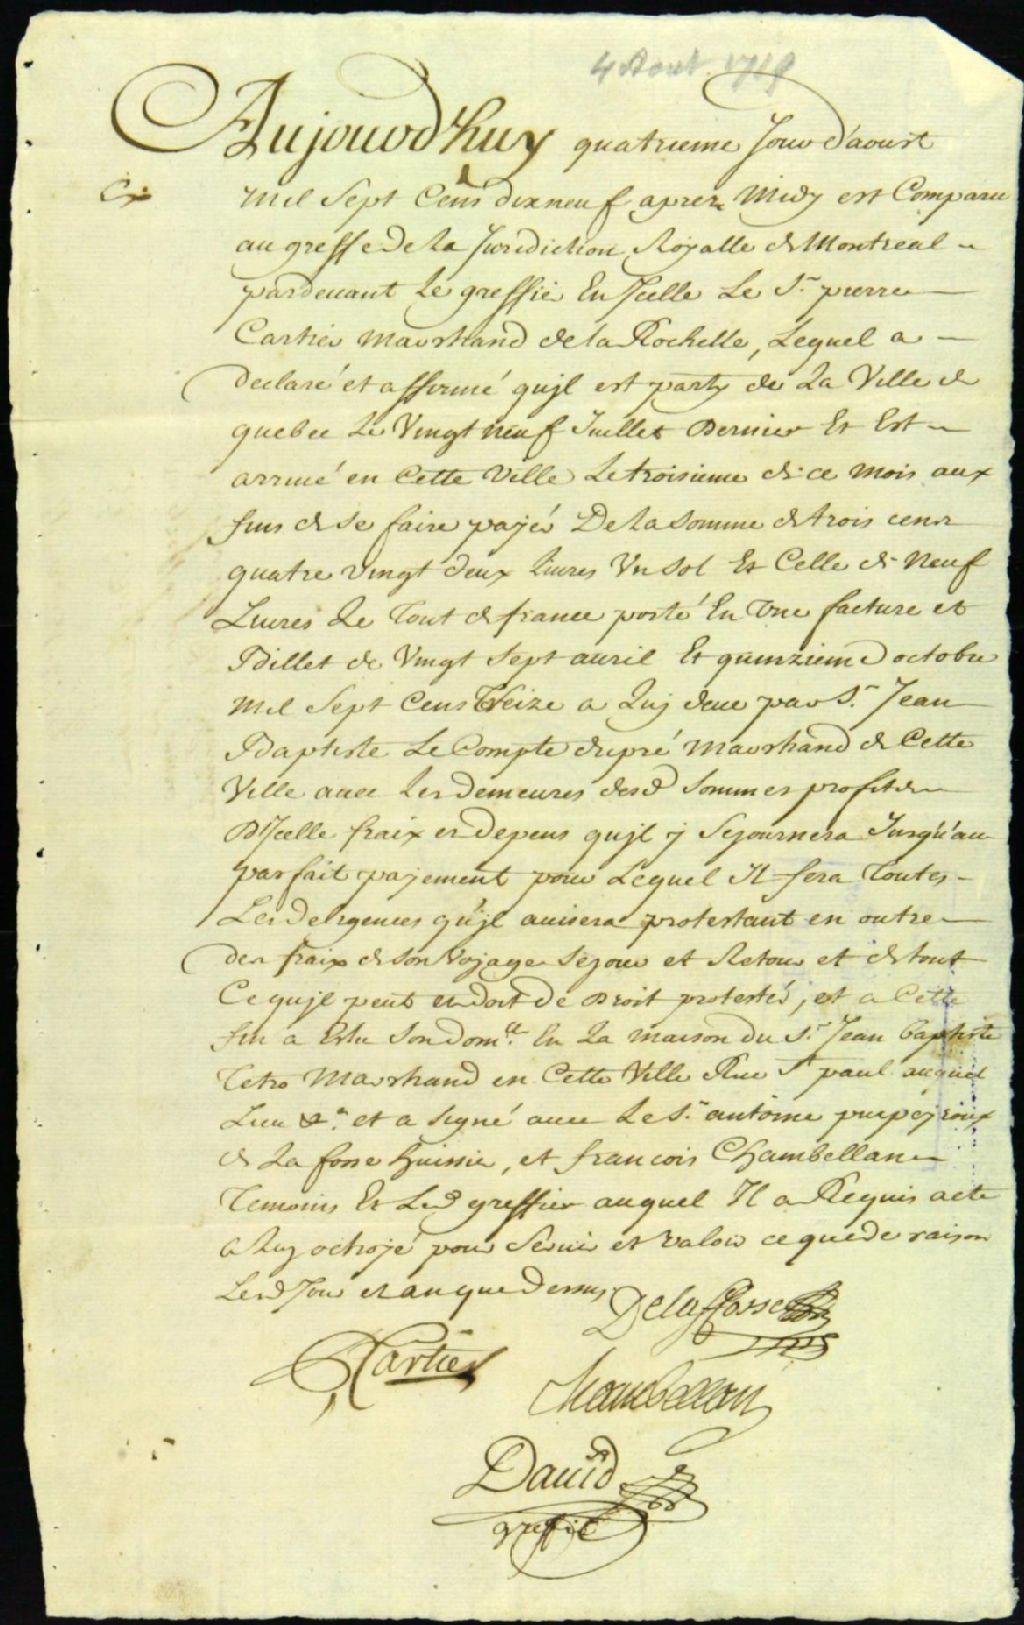 4 Aout 1719
Aujourd'huy quatrieme Jour d'aoust
mil Sept Cens dix neuf aprez Midy est Comparu
au greffe de la Juridiction Royalle de Montreal
pardevant Le greffier En Jcelle Le Sr. pierre
Cartier Marchand de la Rochelle, Lequel a
declaré et affirmé qujl est party de La Ville de
quebec Le Vingt neuf Juillet Dernier Et Est
arrivé en Cette Ville Le troisieme de ce mois aux
fins de se faire payér De la somme de trois cens
quatre vingt deux Livres Un sol Et Celle de Neuf
Livres Le Tout de france porté En Une facture et
Billet de Vingt sept auril Et quinzieme octobre
mil Sept Cens Treize a Luy deue par Sr. Jean
Baptiste Le Compte dupré Marchand de Cette
Ville avec Les demeures desd sommes profit
D'Jcelle fraix et depens qujl y Sejournera Jusqu'au
parfait payement pour Lequel Jl fera Toutes
Les deligences qu'jl auisera protestant en outre
des fraix de son Voyage Sejour et Retour et de tout
Ce qujl peut et doit de Droit protestér, et a Cette
fin a Eslu Son domlle. En La maison du Sr. Jean baptiste
Tetro Marchand en Cette Ville Rue St paul auquel
Lieu &a. et a signé avec Le Sr. antoine puypéroux
de La fosse huissier, et francois Chambellan
Temoins Et Led greffier auquel Jl a Requis acte
a Luy octroyé pour Seruir et valoir ce que de raison
Lesd Jour et an que Dessus
Delafosse
PCartier
Chambellan
Dauid
greffie